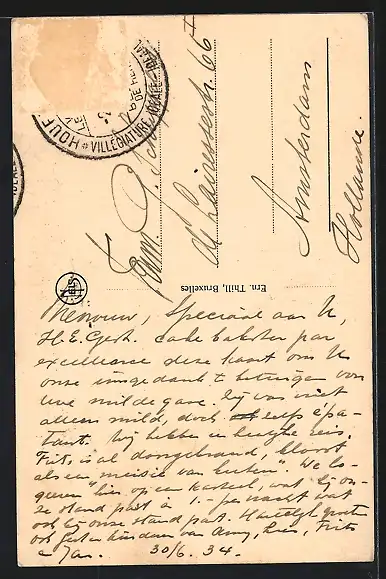 HOUF * VILLÉGIATURE IDÉALE - IDEAAL
Amsterdam
Hollande.
de Lairessestr. 66
Ern. Thill, Bruxelles
Mevrouw, Speciaal aan U,
H.E.Gestr. cake bakster par
excellence deze kaart om U
onze innige dank te betuigen voor
Uwe milde gave. Zij was niet
alleen mild, doch zelfs épa-
tant. Wij hebben een heerlijke reis.
Frits is al doorgebrand, bloost
als een meisie van buiten". We lo-
geeren hier op een kasteel, wat bij on-
ze stand past à 1.- per nacht wat
ook bij onze stand past. Hartelijk groeten
ook
van Amy, Lies, Frits
en Jan. 30/6. 34.